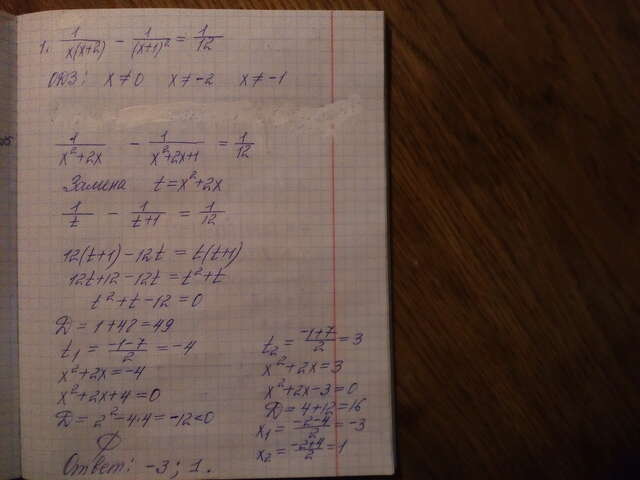 1. 1/x(x+2) - 1/(x+1)² = 1/12
ОДЗ: x≠0 x≠-2 x≠-1
1/x²+2x - 1/x²+2x+1 = 1/12
Замена t=x²+2x
1/t - 1/t+1 = 1/12
12(t+1)-12t = t(t+1)
12t+12-12t = t²+t
t²+t-12=0
Д=1+48=49
t₁ = -1-7/2 = -4
x²+2x=-4
x²+2x+4=0
Д=2²-4·4=-12<0
∅
t₂ = -1+7/2 = 3
x²+2x=3
x²+2x-3=0
Д=4+12=16
x₁ = -2-4/2 = -3
x₂ = -2+4/2 = 1
Ответ: -3; 1.